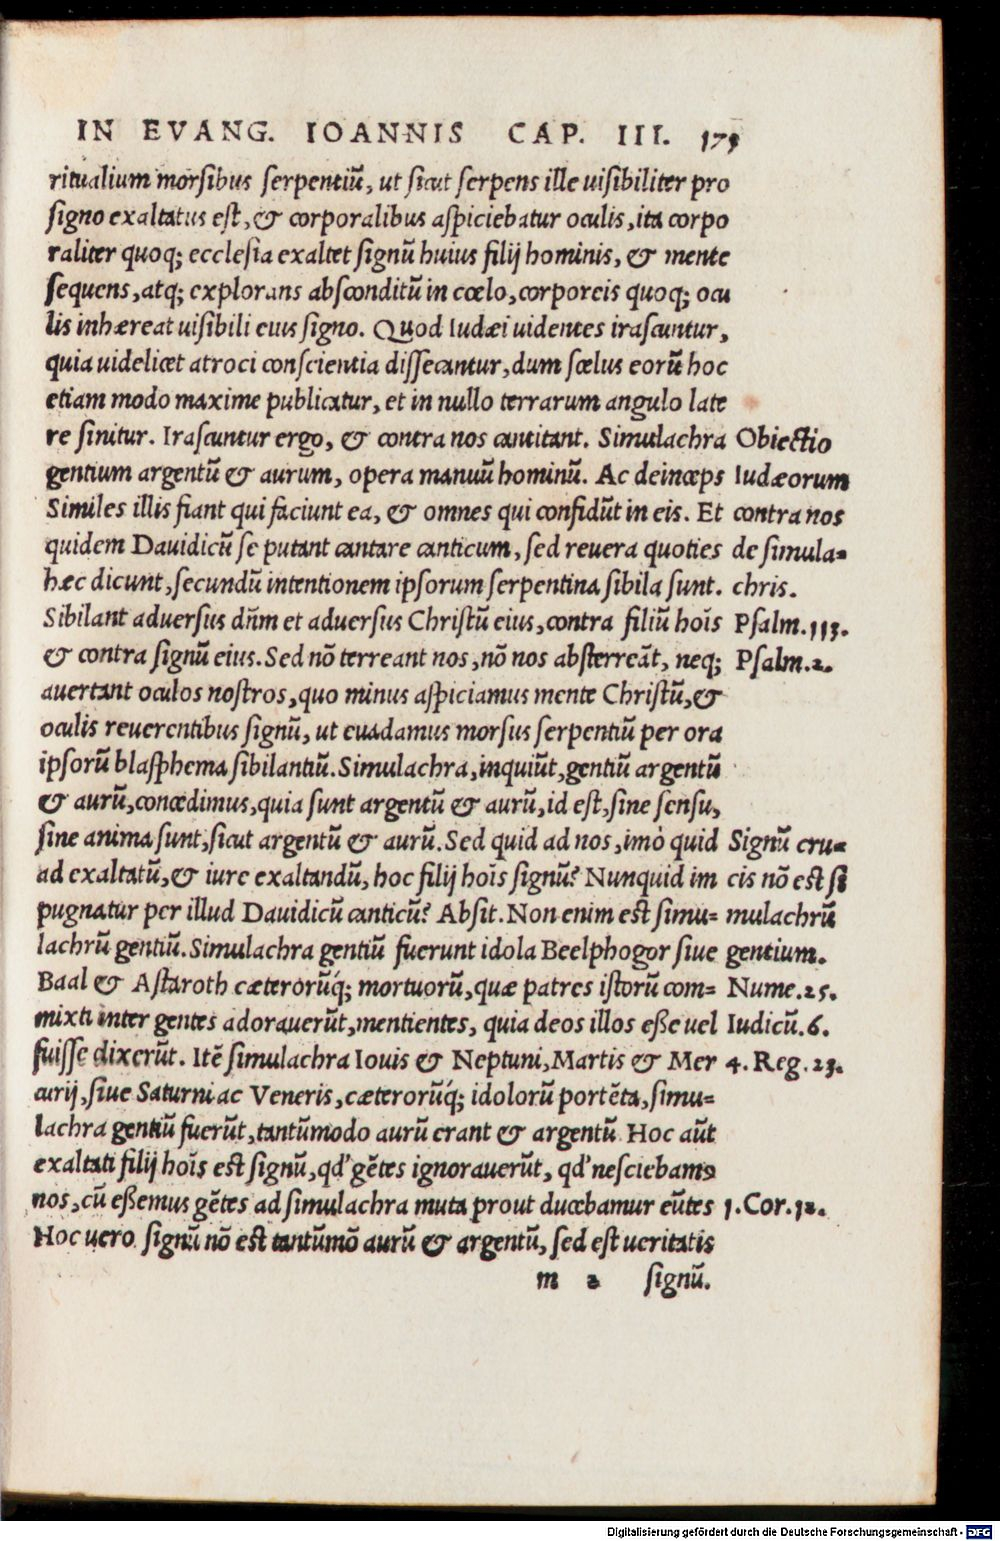 IN EVANG. IOANNIS CAP. III. 179
ritualium morsibus serpentiũ, ut sicut serpens ille uisibiliter pro
signo exaltatus est, & corporalibus aspiciebatur oculis, ita corpo
raliter quoq; ecclesia exaltet signũ huius filij hominis, & mente
sequens, atq; explorans absconditũ in cœlo, corporeis quoq; ocu
lis inhæreat uisibili eius signo. Quod Iudæi uidentes irascuntur,
quia uidelicet atroci conscientia dissecantur, dum scelus eorũ hoc
etiam modo maxime publicatur, et in nullo terrarum angulo late
re sinitur. Irascuntur ergo, & contra nos cantitant. Simulachra
gentium argentũ & aurum, opera manuũ hominũ. Ac deinceps
Similes illis fiant qui faciunt ea, & omnes qui confidũt in eis. Et
quidem Dauidicũ se putant cantare canticum, sed reuera quoties
hæc dicunt, secundũ intentionem ipsorum serpentina sibila sunt.
Sibilant aduersus dñm et aduersus Christũ eius, contra filiũ hoĩs
& contra signũ eius. Sed nõ terreant nos, nõ nos absterreãt, neq;
auertant oculos nostros, quo minus aspiciamus mente Christũ, &
oculis reuerentibus signũ, ut euadamus morsus serpentiũ per ora
ipsorũ blasphema sibilantiũ. Simulachra, inquiũt, gentiũ argentũ
& aurũ, concedimus, quia sunt argentũ & aurũ, id est, sine sensu,
sine anima sunt, sicut argentũ & aurũ. Sed quid ad nos, imò quid
ad exaltatũ, & iure exaltandũ, hoc filij hoĩs signũ? Nunquid im
pugnatur per illud Dauidicũ canticũ? Absit. Non enim est simu=
lachrũ gentiũ. Simulachra gentiũ fuerunt idola Beelphogor siue
Baal & Astaroth cæterorũq́; mortuorũ, quæ patres istorũ com=
mixti inter gentes adorauerũt, mentientes, quia deos illos esse uel
fuisse dixerũt. Itẽ simulachra Iouis & Neptuni, Martis & Mer
curij, siue Saturni ac Veneris, cæterorũq́; idolorũ portẽta, simu=
lachra gentiũ fuerũt, tantũmodo aurũ erant & argentũ Hoc aũt
exaltati filij hoĩs est signũ, qd' gẽtes ignorauerũt, qd' nesciebamꝰ
nos, cũ essemus gẽtes ad simulachra muta prout ducebamur eũtes
Hoc uero signũ nõ est tantũmõ aurũ & argentũ, sed est ueritatis
m 2 signũ.
Obiectio
Iudæorum
contra nos
de simula=
chris.
Psalm. 113.
Psalm. 2.
Signũ cru=
cis nõ est si
mulachrũ
gentium.
Nume. 25.
Iudicũ. 6.
4. Reg. 23.
1. Cor. 12.
Digitalisierung gefördert durch die Deutsche Forschungsgemeinschaft - DFG